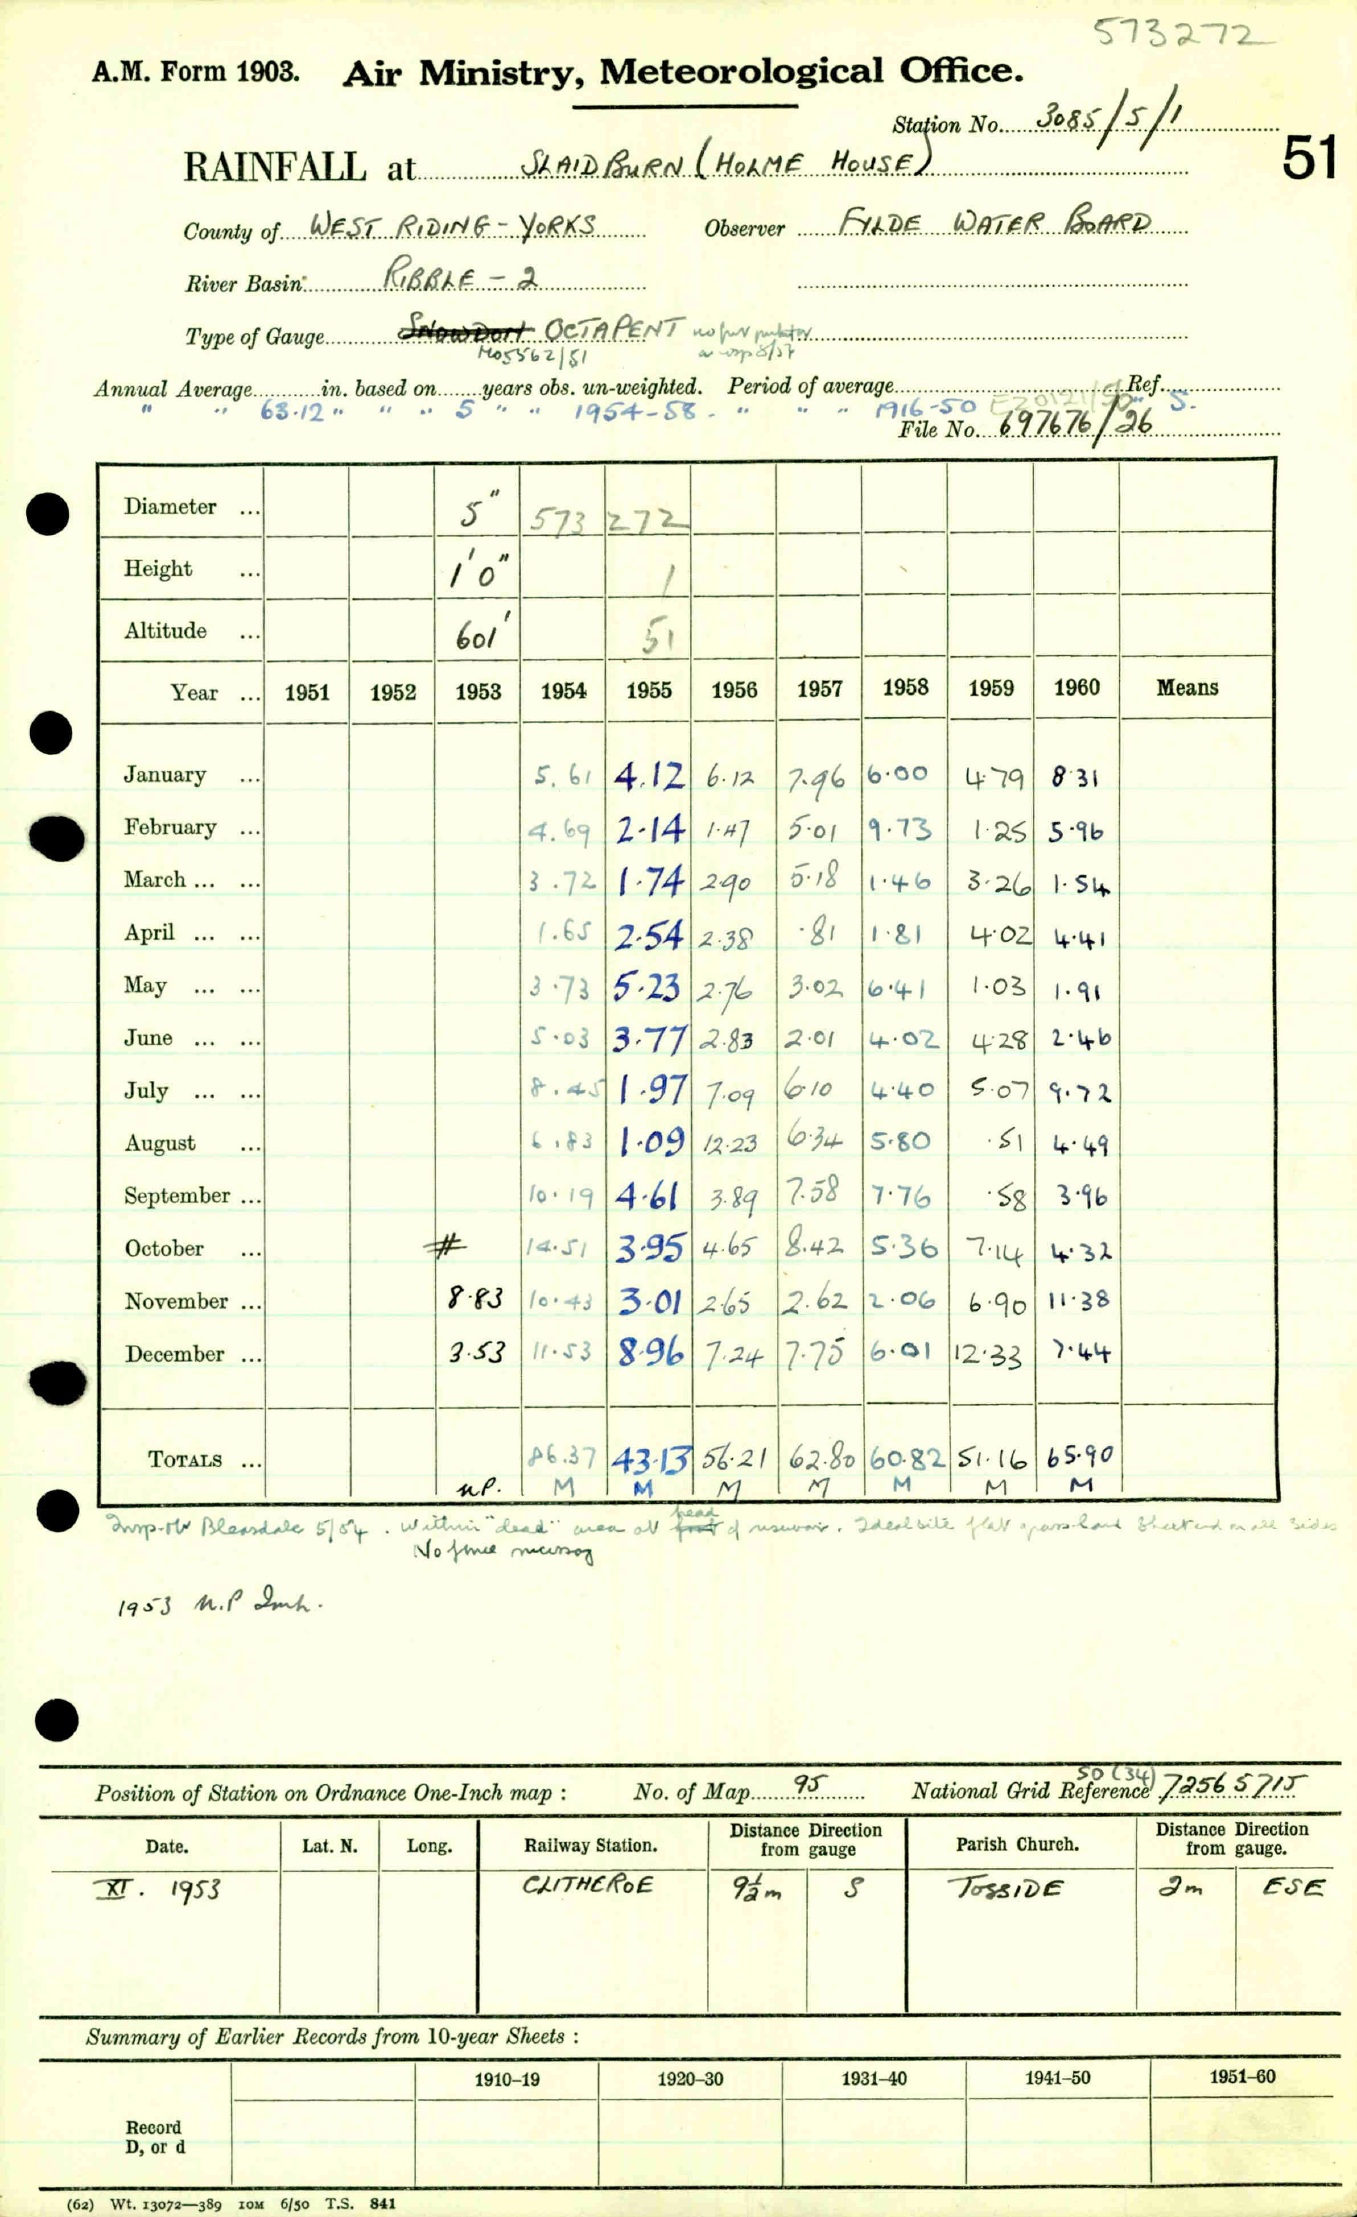 573272
A.M. Form 1903. Air Ministry, Meteorological Office.
Station No. 3085/5/1
RAINFALL at SLAIDBURN (HOLME HOUSE)
51
County of WEST RIDING - YORKS Observer FYLDE WATER BOARD
River Basin RIBBLE - 2
Type of Gauge Snowdon OCTAPENT
MO5562/51
Annual Average in. based on years obs. un-weighted. Period of average Ref.
" " 63.12 " " " 5 " " 1954-58. " " " 1916-50 S.
File No. 697676/26
Diameter ... 5" 573 272
Height ... 1'0" 1
Altitude ... 601' 51
Year ... 1951 1952 1953 1954 1955 1956 1957 1958 1959 1960 Means
January ... 5.61 4.12 6.12 7.96 6.00 4.79 8.31
February ... 4.69 2.14 1.47 5.01 9.73 1.25 5.96
March ... ... 3.72 1.74 2.90 5.18 1.46 3.26 1.54
April ... ... 1.65 2.54 2.38 .81 1.81 4.02 4.41
May ... ... 3.73 5.23 2.76 3.02 6.41 1.03 1.91
June ... ... 5.03 3.77 2.83 2.01 4.02 4.28 2.46
July ... ... 8.45 1.97 7.09 6.10 4.40 5.07 9.72
August ... 6.83 1.09 12.23 6.34 5.80 .51 4.49
September ... 10.19 4.61 3.89 7.58 7.76 .58 3.96
October ... # 14.51 3.95 4.65 8.42 5.36 7.14 4.32
November ... 8.83 10.43 3.01 2.65 2.62 2.06 6.90 11.38
December ... 3.53 11.53 8.96 7.24 7.75 6.01 12.33 7.44
TOTALS ... 86.37 43.13 56.21 62.80 60.82 51.16 65.90
n.P. M M M M M M M
head
Insp. Mr Bleasdale 5/54. Within "dead" area at of reservoir. Ideal site flat grassland Sheltered on all sides
No fence necessary
1953 N.P Inch.
50 (34)
Position of Station on Ordnance One-Inch map : No. of Map 95 National Grid Reference 72565715
Date. Lat. N. Long. Railway Station. Distance Direction from gauge Parish Church. Distance Direction from gauge.
XI. 1953 CLITHEROE 9½m S TOSSIDE 2m ESE
Summary of Earlier Records from 10-year Sheets :
1910–19 1920–30 1931–40 1941–50 1951–60
Record
D, or d
(62) Wt. 13072—389 10M 6/50 T.S. 841